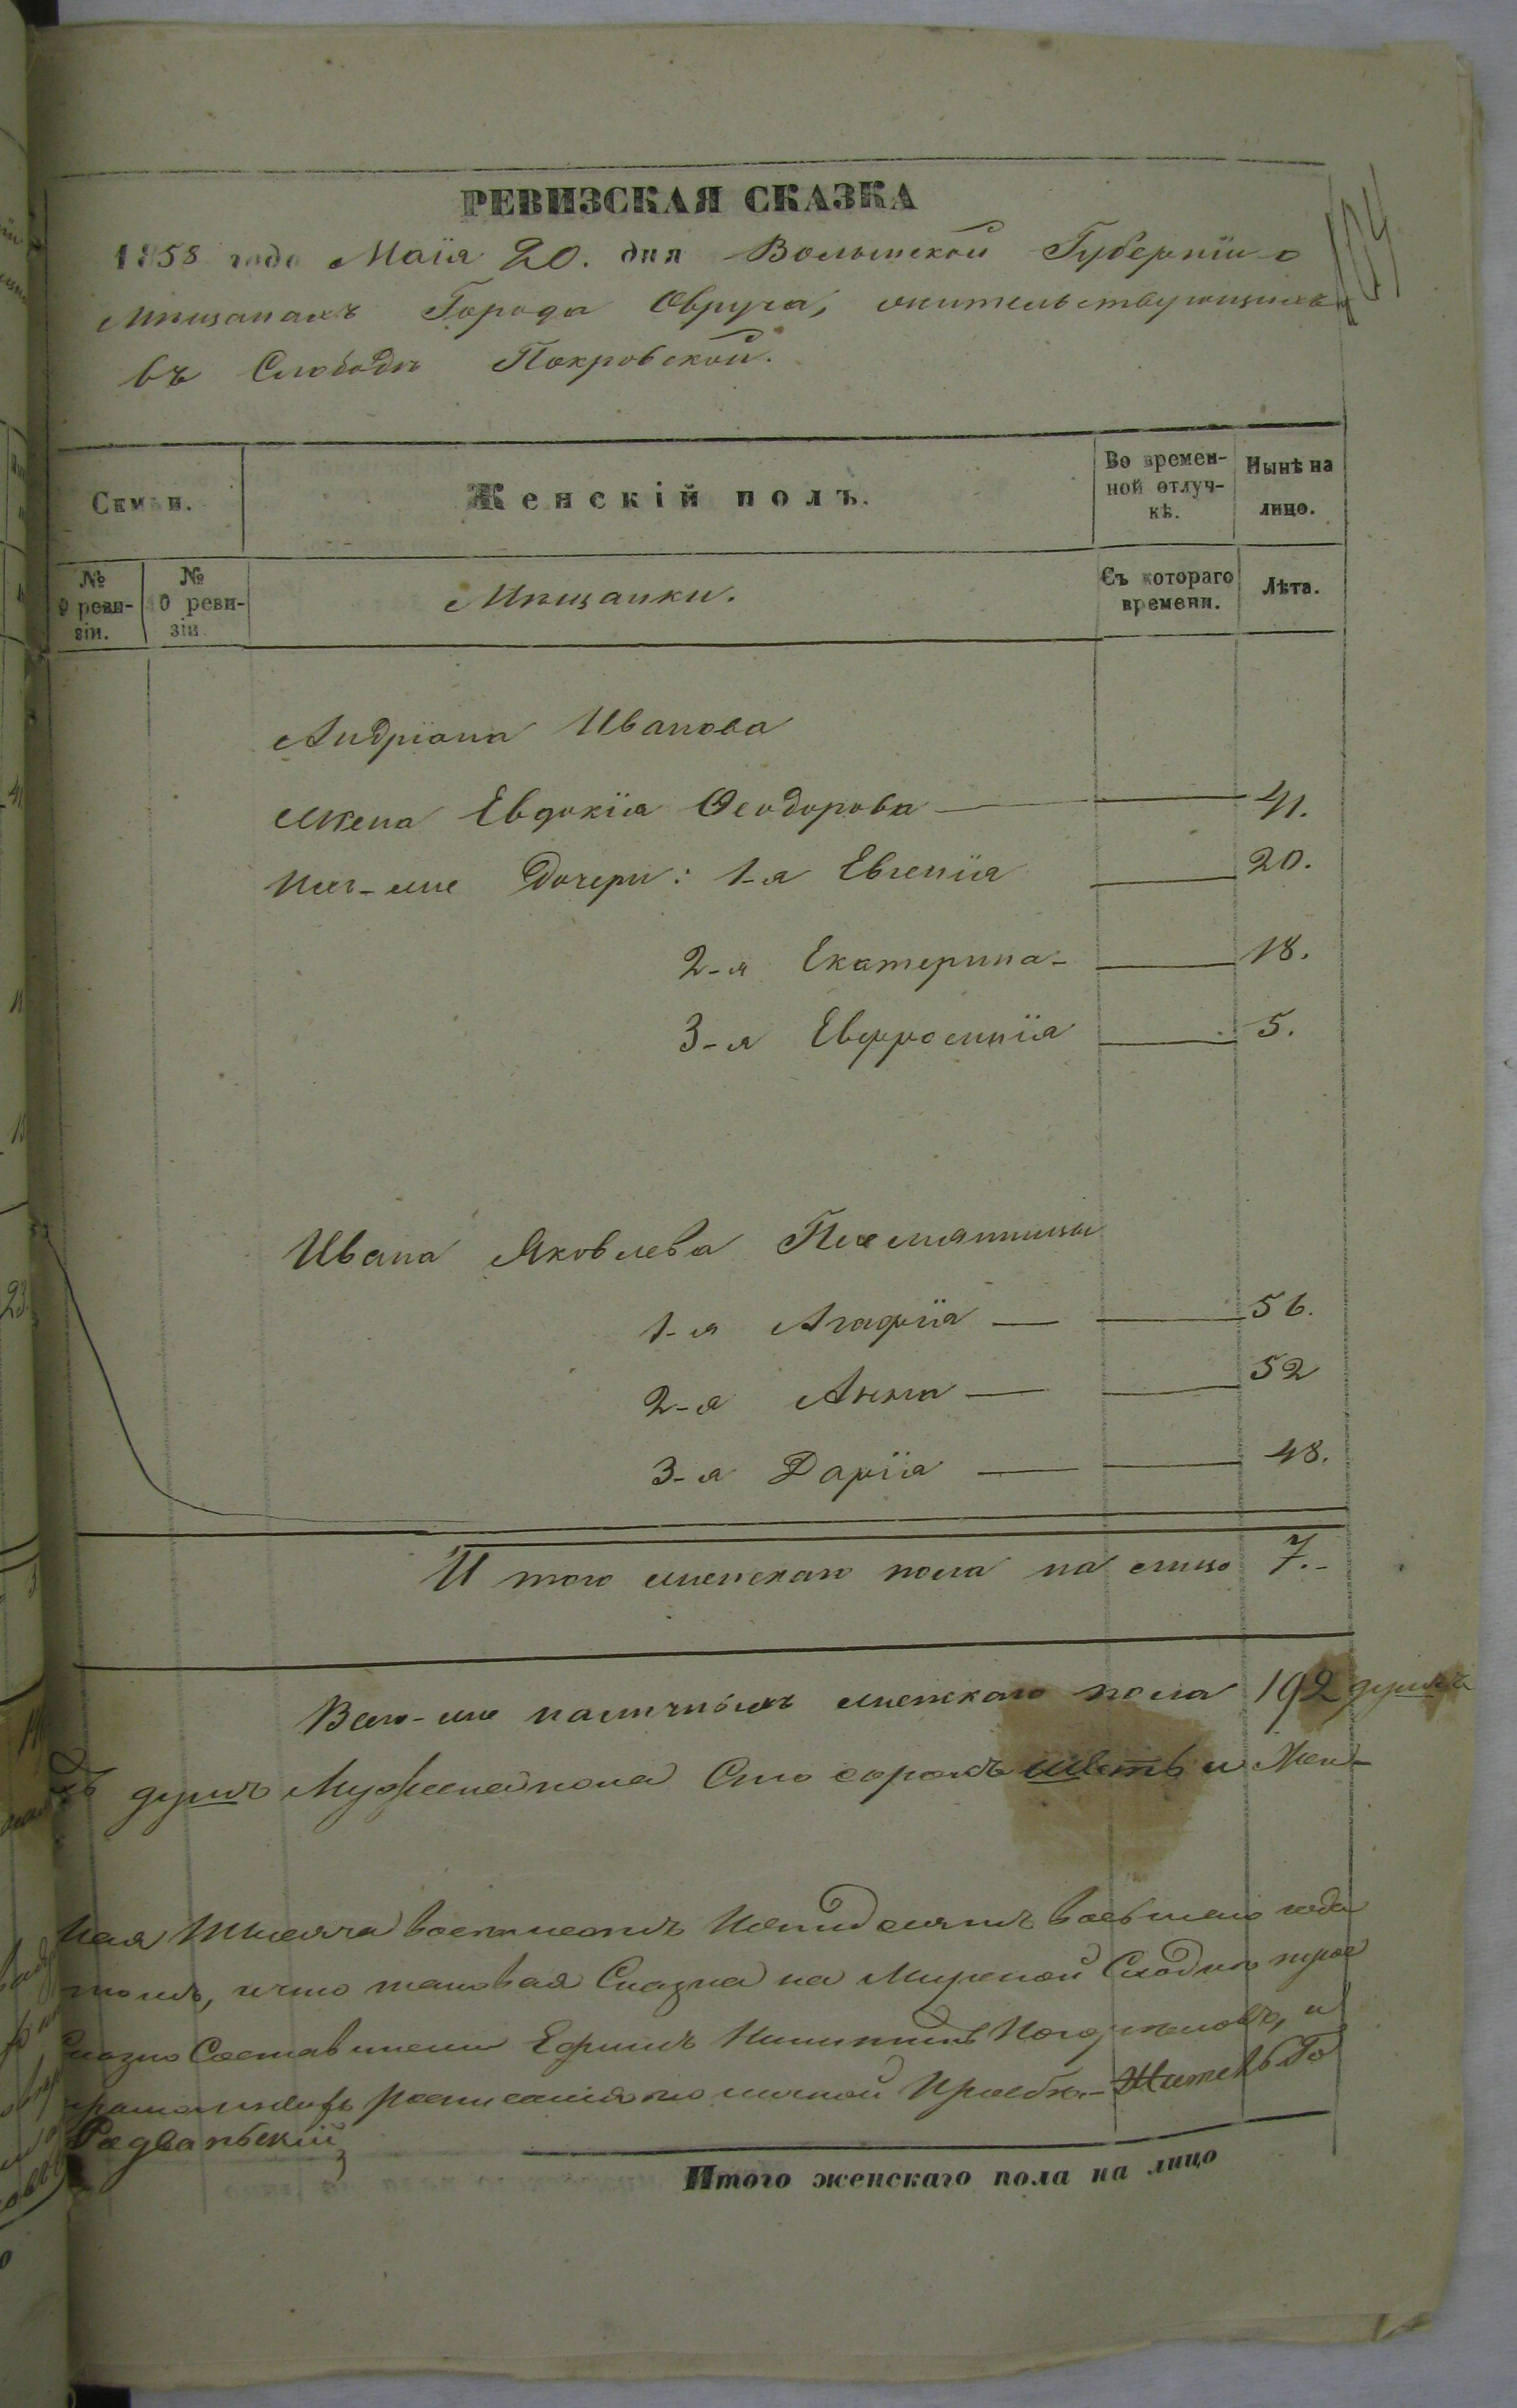 104
РЕВИЗСКАЯ СКАЗКА
1858 года Маїя 20. дня Волынской Губернїи о
Мѣщанахъ Города Овруча, жительствующихъ
въ Слободѣ Покровской.
Семьи.
Женскій полъ.
Во времен-
ной отлуч-
кѣ.
Нынѣ на
лицо.
№
9 реви-
зіи.
№
10 реви-
зіи
Мѣщанки.
Съ котораго
времени.
Лѣта.
Андрїана Иванова
Жена Евдокїя Ѳеодорова 41.
Ихъ-же Дочери: 1-я Евгенїя 20.
2-я Екатерина 18.
3-я Евфросинїя 5.
Ивана Яковлева Племянницы
1-я Агафїя 56.
2-я Анна 52
3-я Дарїя 48.
Итого женскаго пола на лицо 7.
Всего-же наличныхъ женскаго пола 192 души
душъ Мужеска пола Сто сорокъ шесть и Жен-
Мая Тысяча восемьсотъ Пятдесятъ восьмаго года
томъ, что таковая Сказка на Мирской
Составлена Ефимъ и
росписался по личной Просбѣ Житель Го
Радваньскій
Итого женскаго пола на лицо